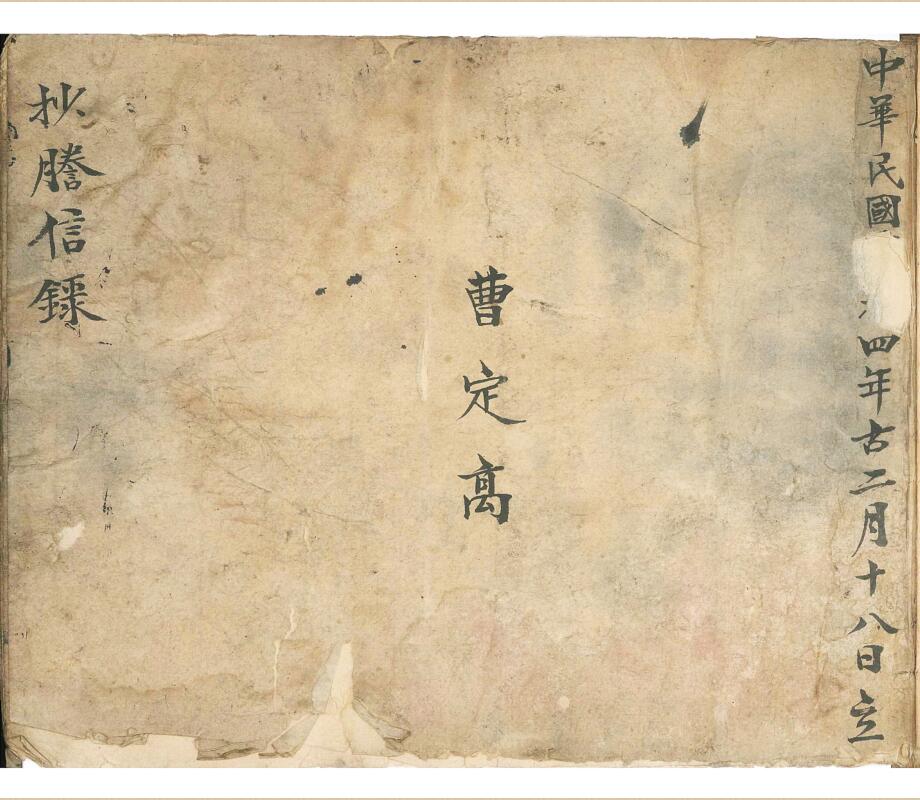 中華民國四年古二月十八日立
曹定萬
抄謄信錄